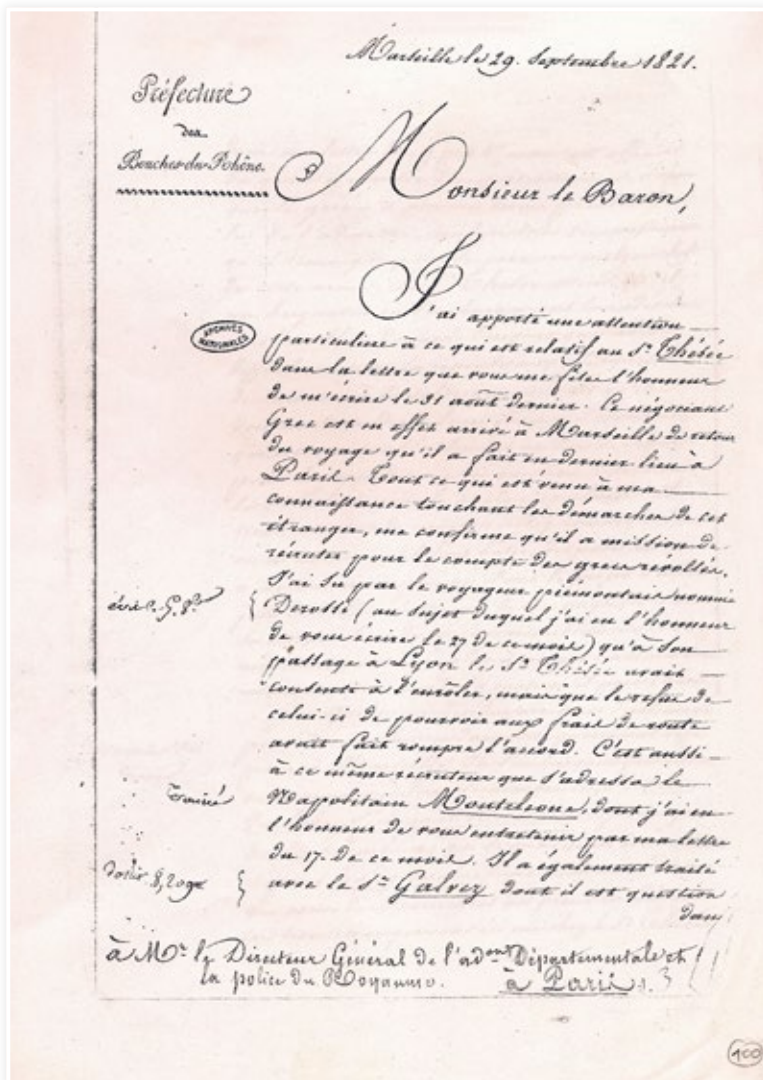 Marseille le 29. Septembre 1821.
Préfecture
des
Bouches-du-Rhône.
Monsieur le Baron,
J'ai apporté une attention
ARCHIVES
NATIONALES
particulière à ce qui est relatif au Sr. Thésée
dans la lettre que vous me fîtes l'honneur
de m'écrire le 31 août dernier. Ce négociant
Grec est en effet arrivé à Marseille de retour
du voyage qu'il a fait en dernier lieu à
Paris. Tout ce qui est venu à ma
connaissance touchant les démarches de cet
étranger, me confirme qu'il a mission de
recruter pour le compte des grecs révoltés.
J'ai su par le voyageur piémontais nommé
Derossi (au sujet duquel j'ai eu l'honneur
de vous écrire le 27 de ce mois) qu'à son
passage à Lyon le Sr. Thésée avait
consenti à l'enrôler, mais que le refus de
celui-ci de pourvoir aux frais de route
avait fait rompre l'accord. C'est aussi
à ce même recruteur que s'adressa le
Napolitain Monteleone, dont j'ai eu
l'honneur de vous entretenir par ma lettre
du 17. de ce mois. Il a également traité
avec le Sr. Galvez dont il est question
dans
à Mr. le Directeur Général de l'adon. Départementale et
la police du Royaume. à Paris.
100